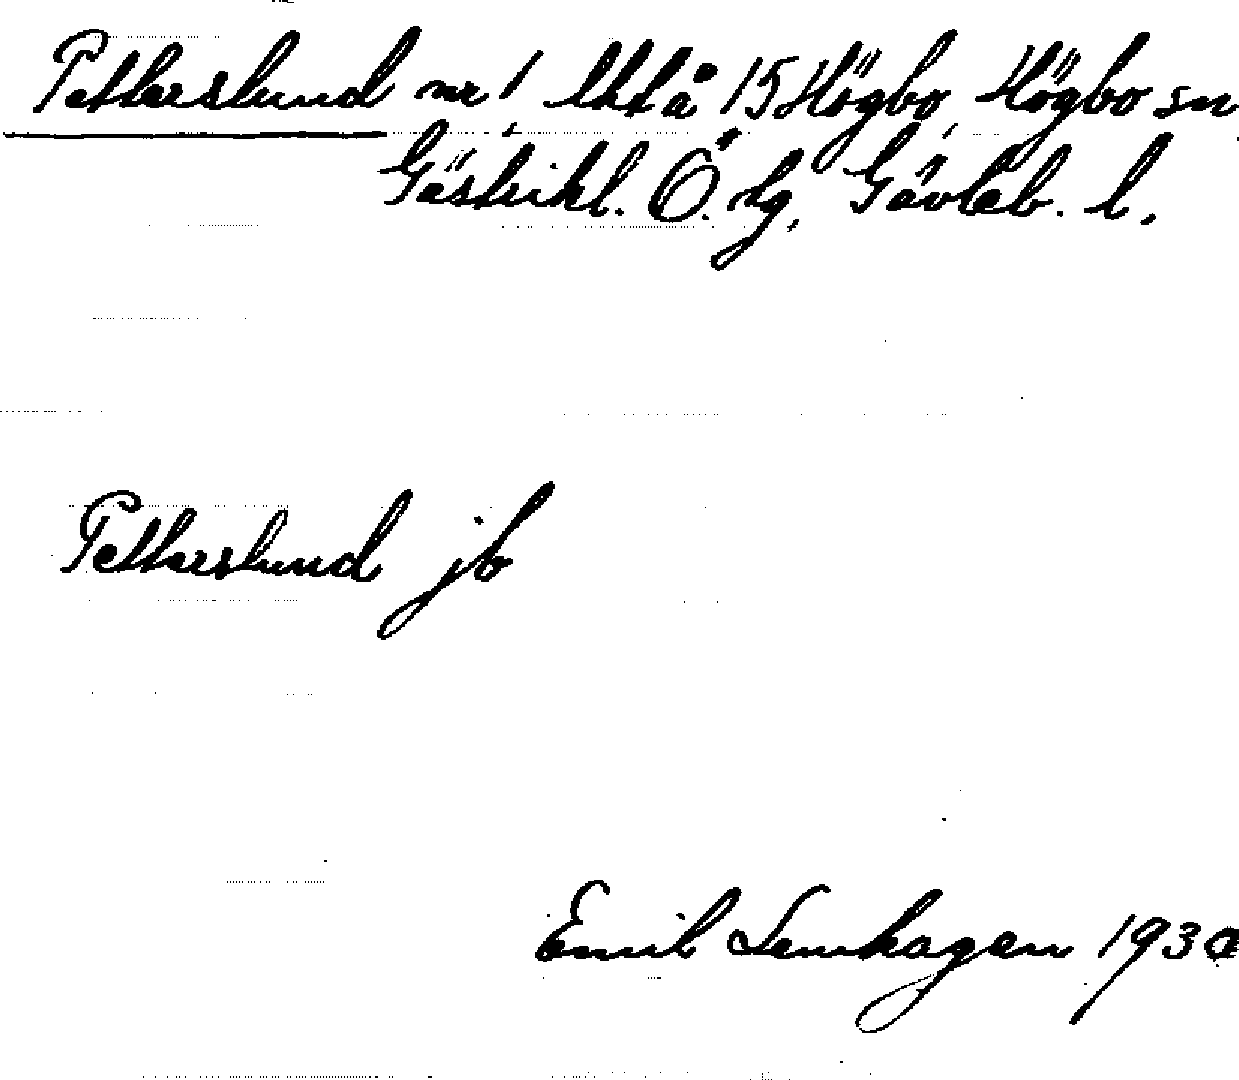 Petterslund nr 1 Utt å 15 Högbo, Högbo sn,
Gästrikl. Ö. tg, Gävleb. l.
Petterslund jb
Emil Lenhagen 1930